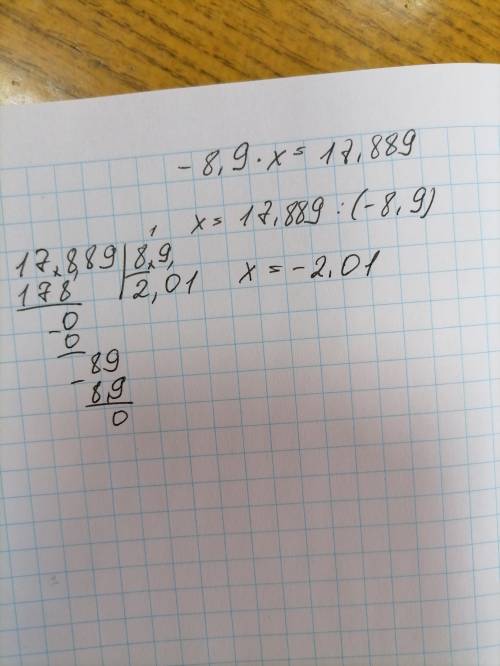 -8,9·x=17,889
x=17,889:(-8,9)
x=-2,01
17,889|8,9
178 2,01
-0
0
-89
8,9
0